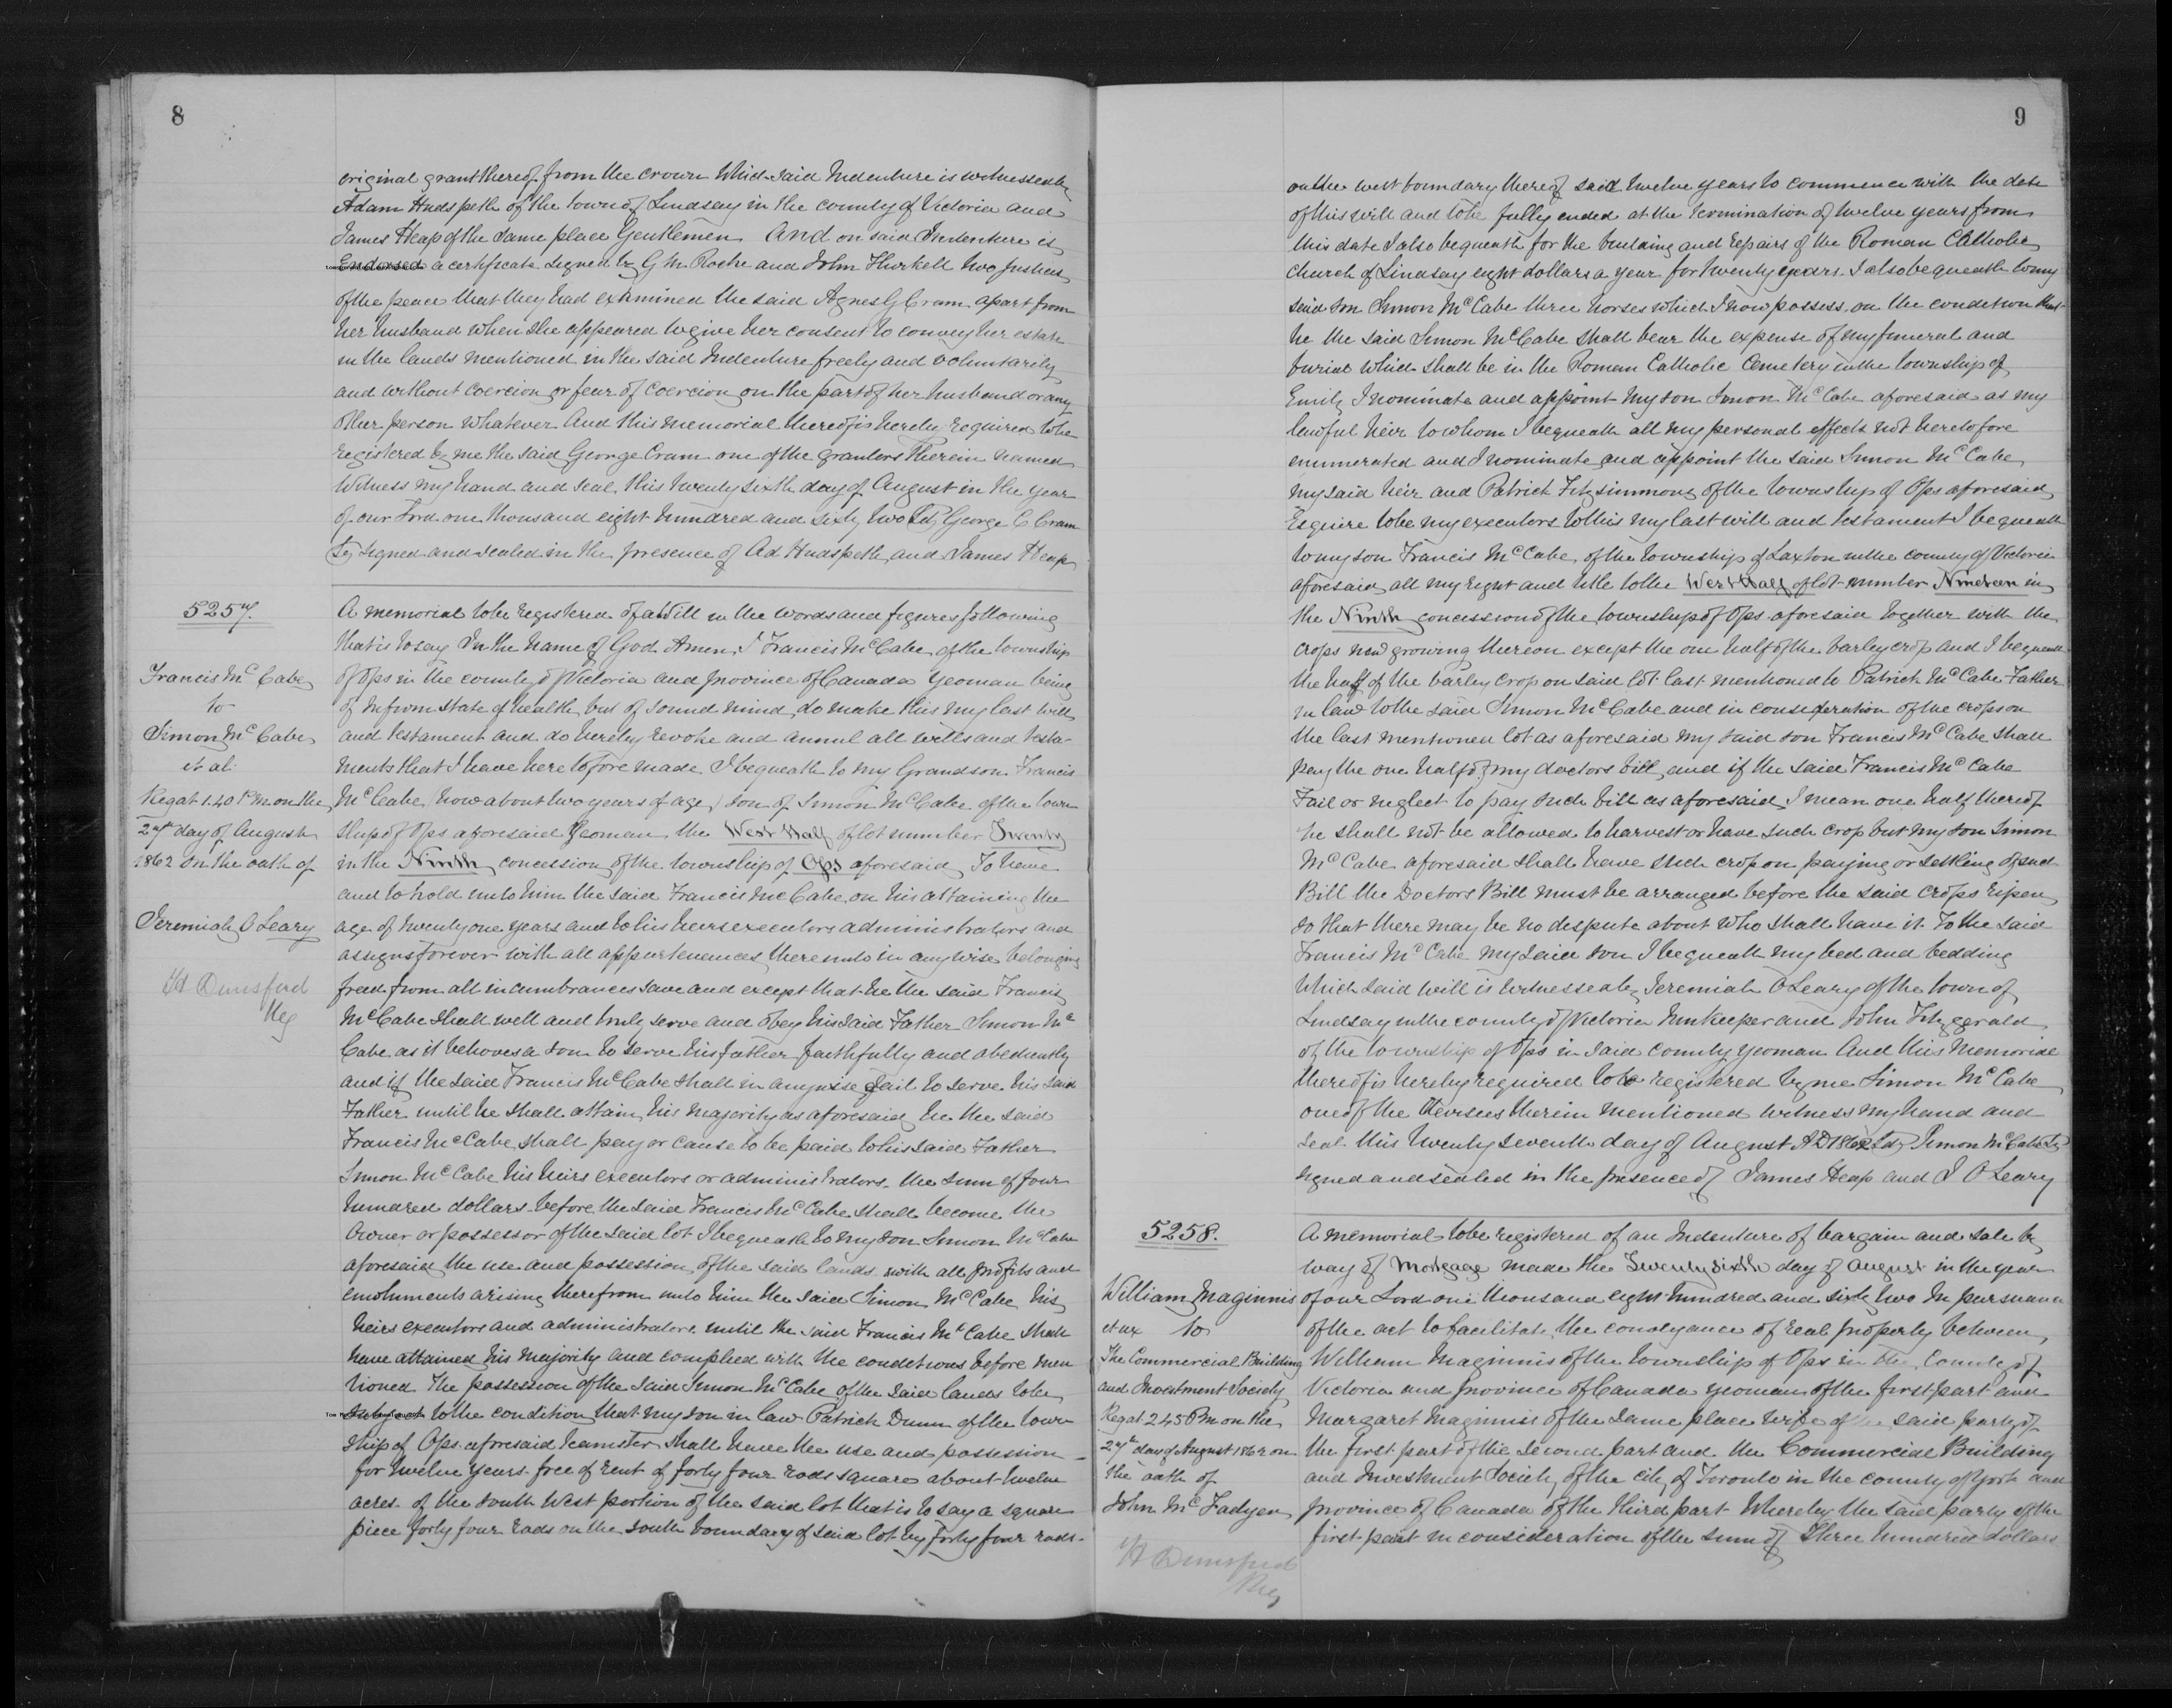 8
original grant thereof from the crown Which said Indenture is witnessed by
Adam Hudspeth of the town of Lindsay in the county of Victoria and
James Heap of the same place Gentlemen And on said Indenture is
Endorsed a certificate signed by G M Roche and John Thirkell two Justices
of the peace that they had examined the said Agnes G Cram apart from
her husband when she appeared to give her consent to convey her estate
in the lands mentioned in the said Indenture freely and voluntarily
and without coercion or fear of coercion on the part of her husband or any
other person whatever And this memorial thereof is hereby required to be
registered by me the said George Cram one of the grantors therein named
Witness my hand and seal this twenty sixth day of August in the year
of our Lord one thousand eight hundred and sixty two George C Cram
signed and sealed in the presence of Ad Hudspeth and James Heap
5257.
Francis McCabe
to
Simon McCabe
et al
Regat 1.40 PM on the
27th day of August
1862 on the oath of
Jeremiah O Leary
H Dunsford
Reg
A memorial to be registered of a Will in the words and figures following
that is to say In the name of God Amen I Francis McCabe of the township
of Ops in the county of Victoria and province of Canada Yeoman being
of infirm state of health but of sound mind, do make this my last will
and testament and do hereby revoke and annul all wills and testa-
ments that I have heretofore made I bequeath to my Grandson Francis
McCabe (now about two years of age) son of Simon McCabe of the town
ship of Ops aforesaid Yeoman the West Half of lot number Twenty
in the Ninth concession of the township of Ops aforesaid To have
and to hold unto him the said Francis McCabe on his attaining the
age of twenty one years and to his heirs executors administrators and
assigns forever with all appurtenances thereunto in any wise belonging
freed from all incumbrances save and except that he the said Francis
McCabe shall well and truly serve and obey his said Father Simon Mc
Cabe as it behoves a son to serve his father faithfully and obediently
and if the said Francis McCabe shall in anywise fail to serve his said
Father until he shall attain his majority as aforesaid he the said
Francis McCabe shall pay or cause to be paid to his said Father
Simon McCabe his heirs executors or administrators the sum of four
hundred dollars before the said Francis McCabe shall become the
owner or possessor of the said lot I bequeath to my son Simon McCabe
aforesaid the use and possession of the said lands with all profits and
emoluments arising therefrom unto him the said Simon McCabe his
heirs executors and administrators until the said Francis McCabe shall
have attained his majority and complied with the conditions before men
tioned The possession of the said Simon McCabe of the said lands to be
subject to the condition that my son in law Patrick Dunn of the town
ship of Ops aforesaid teamster shall have the use and possession
for twelve years free of rent of forty four rods square about twelve
acres of the South West portion of the said lot that is to say a square
piece forty four rods on the south boundary of said lot by forty four rods
9
on the west boundary thereof said twelve years to commence with the date
of this will and to be fully ended at the termination of twelve years from
this date I also bequeath for the building and repairs of the Roman Catholic
church of Lindsay eight dollars a year for twenty years. I also bequeath to my
said son Simon McCabe three horses which I now possess on the condition that
he the said Simon McCabe shall bear the expense of my funeral and
burial which shall be in the Roman Catholic Cemetery in the township of
Emily I nominate and appoint my son Simon McCabe aforesaid as my
lawful heir to whom I bequeath all my personal effects not heretofore
enumerated and I nominate and appoint the said Simon McCabe
my said heir and Patrick Fitzsimmons of the township of Ops aforesaid
Esquire to be my executors to this my last will and testament I bequeath
to my son Francis McCabe of the township of Laxton in the county of Victoria
aforesaid all my right and title to the West Half of lot number Nineteen in
the Ninth concession of the township of Ops aforesaid together with the
crops now growing thereon except the one half of the barley crop and I bequeath
the half of the barley crop on said lot last mentioned to Patrick McCabe Father
in law to the said Simon McCabe and in consideration of the crops on
the last mentioned lot as aforesaid my said son Francis McCabe shall
pay the one half of my doctors bill, and if the said Francis McCabe
Fail or neglect to pay such bill as aforesaid I mean one half thereof
he shall not be allowed to harvest or have such crop but my son Simon
McCabe aforesaid shall have such crop on paying or settling of such
Bill the Doctors Bill must be arranged before the said crops ripen
so that there may be no despute about who shall have it. To the said
Francis McCabe my said son I bequeath my bed and bedding
Which said will is witnessed by Jeremiah O Leary of the town of
Lindsay in the county of Victoria Innkeeper and John Fitzgerald
of the township of Ops in said county yeoman And this Memorial
thereof is hereby required to be registered by me Simon McCabe
one of the devisees therein mentioned Witness my hand and
seal this twenty seventh day of August AD 1862 Simon McCabe
signed and sealed in the presence of James Heap and J O Leary
5258.
William Maginnis
et ux to
The Commercial Building
and Investment Society
Regat 2 45 PM on the
27th day of August 1862 on
the oath of
John McFadyen
H Dunsford
Reg
A memorial to be registered of an Indenture of bargain and sale by
way of Mortgage made the Twenty sixth day of August in the year
of our Lord one thousand eight hundred and sixty two In pursuance
of the act to facilitate the conveyance of real property between
William Maginnis of the township of Ops in the County of
Victoria and province of Canada yeoman of the first part and
Margaret Maginnis of the same place wife of the said party of
the first part of the second part and the Commercial Building
and Investment Society of the city of Toronto in the county of York and
province of Canada of the third part Whereby the said party of the
first part in consideration of the sum of Three hundred dollars